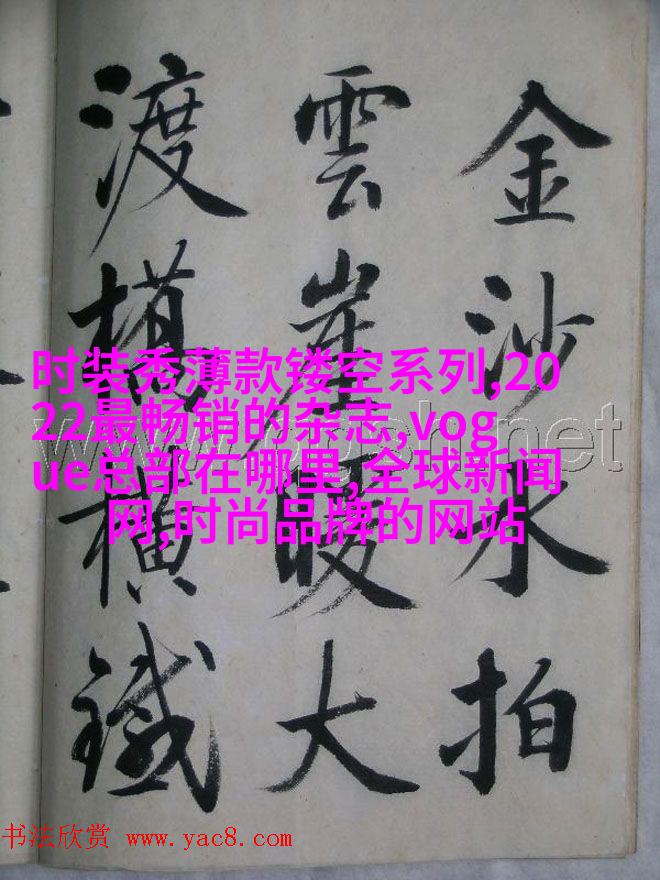 金沙水拍
雲崖暖大
渡橋橫鐵
时装秀薄款镂空系列,20
22最畅销的杂志,vog
ue总部在哪里,全球新闻
网,时尚品牌的网站
书法欣赏 www.yac8.com